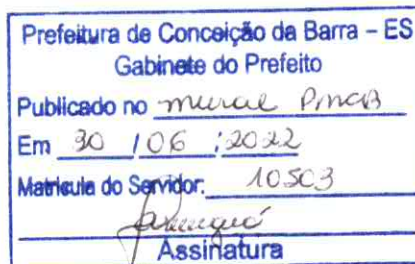 Prefeitura de Conceição da Barra – ES
Gabinete do Prefeito
Publicado no mural PMCB
Em 30 / 06 / 2022
Matricula do Servidor: 10503
Assinatura